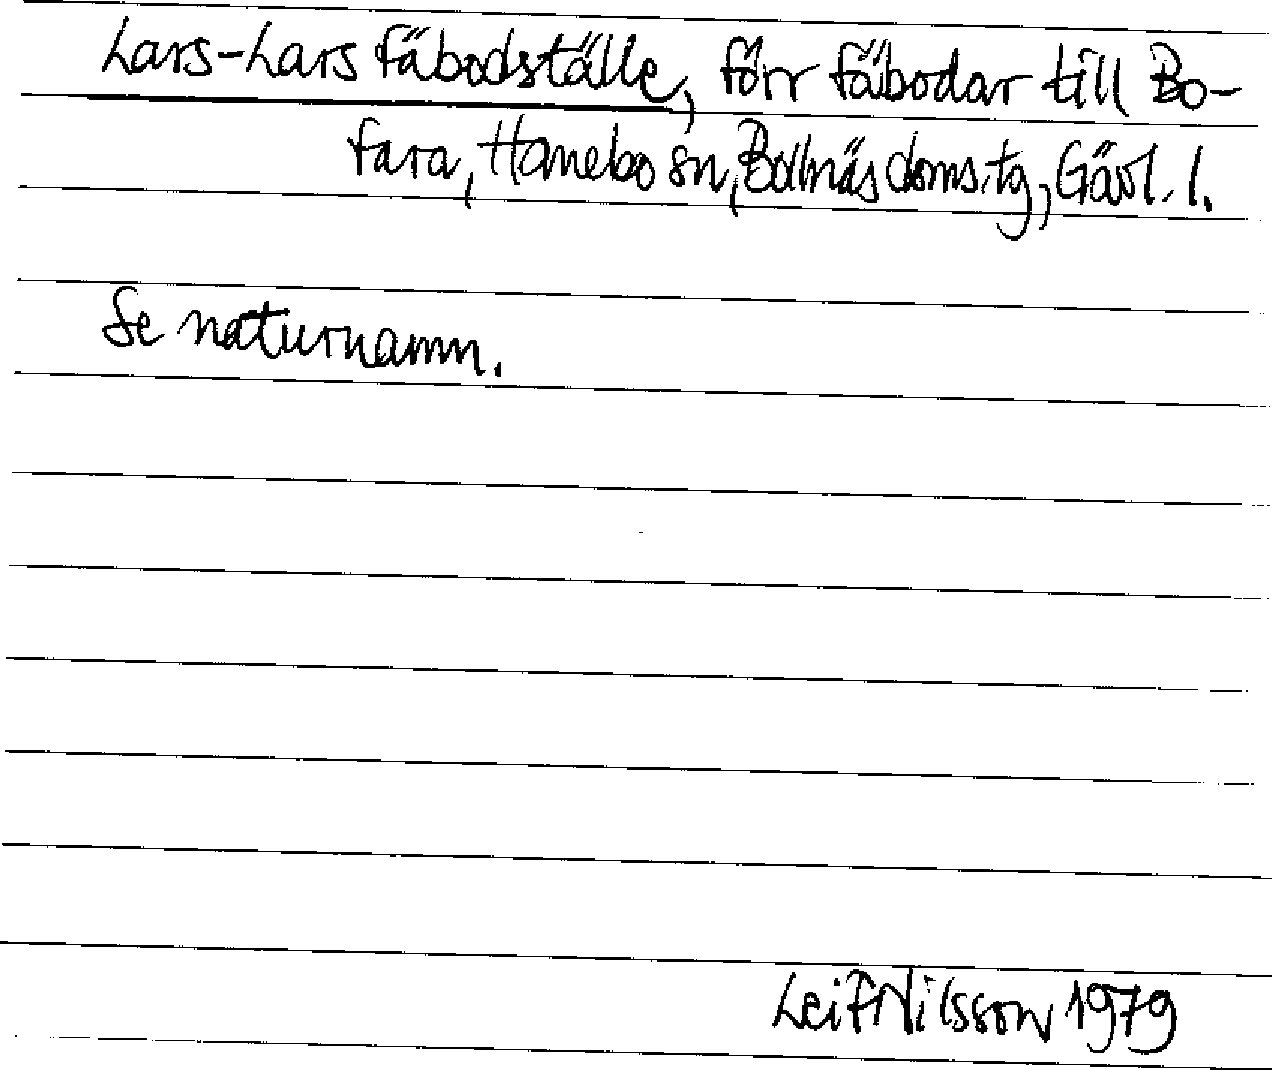 Lars-Lars fäbodställe, förr fäbodar till Bo-
fara, Hanebo sn, Bollnäs doms. tg, Gävl. l.
Se naturnamn.
Leif Nilsson 1979